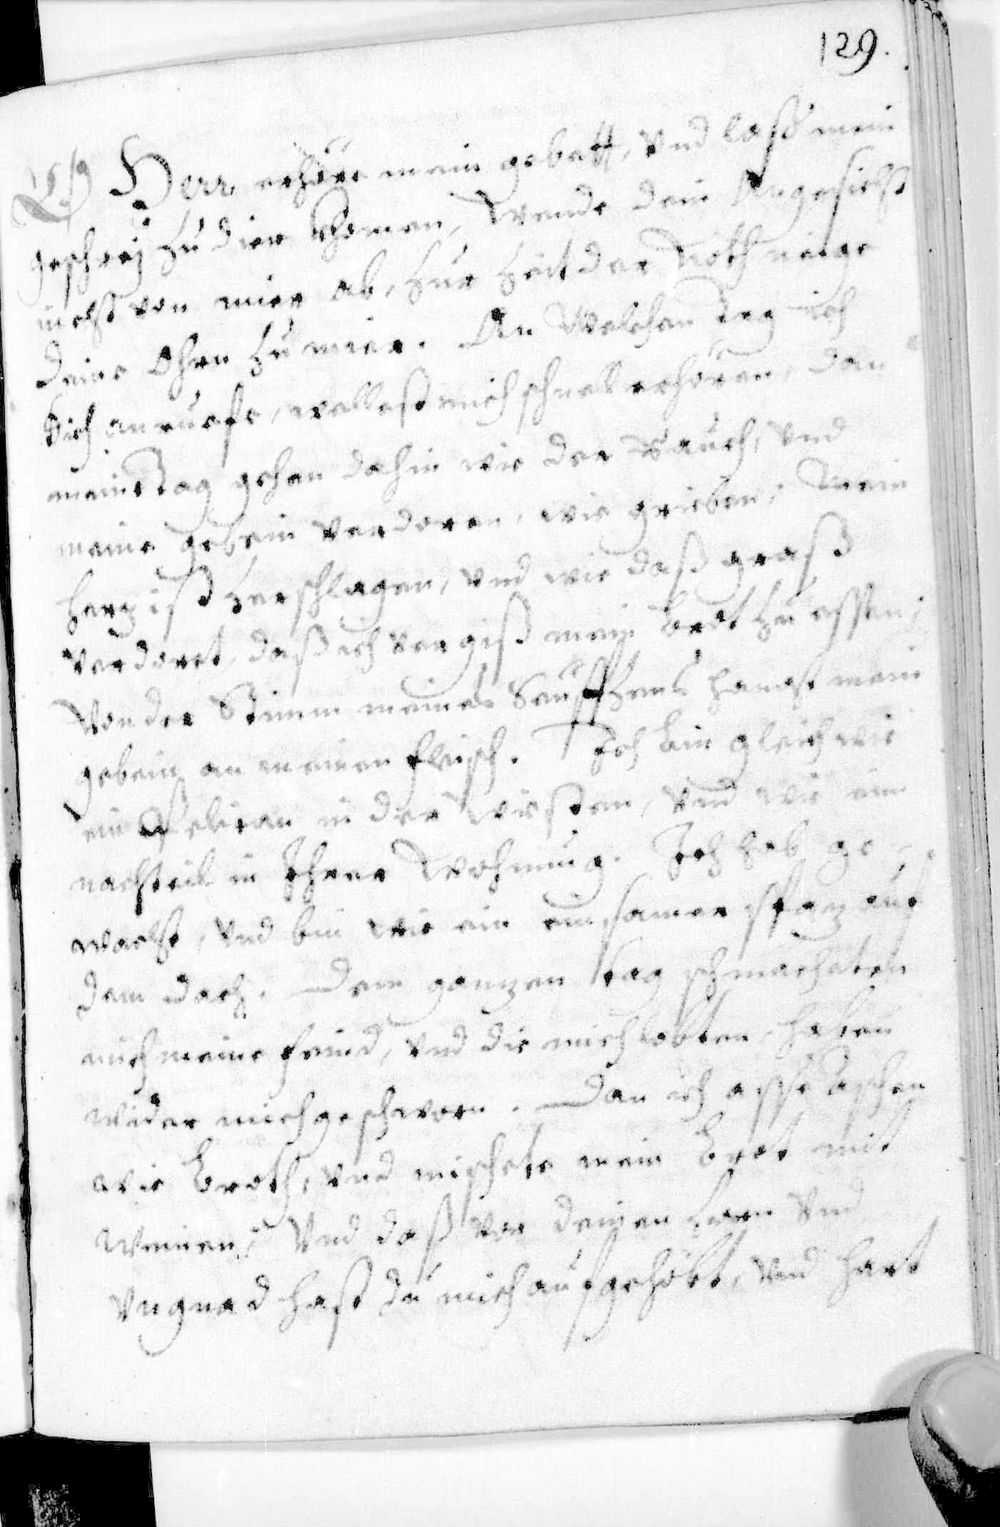 129.
O Herr erhöre mein gebett, Vnd laß mein
geschreÿ zu dier khomen, Wende dein Angesicht
nicht von mier ab, zur Zeit der Noth neige
deine Ohrn zu mier. An Welchem tag ich
dich anruefe, wollest mich schnel erhören, dan
meine tag gehen dahin wie der Rauch, Vnd
meine gebein verdoren, wie grieben, Mein
herz ist zerschlagen, Vnd wie daß graß
verdoret, daß ich vergiß mein brot zu essen,
Von der Stimm meines Seuffzens hangt mein
gebein an meinen fleisch. Ich bin gleich wie
ein Pelican in der Wiesten, Vnd wie ein
nachteil in Ihrer Wohnung. Ich hab ge-
wacht, Vnd bin wie ein einsamer spaz auf
dem dach. Den ganzen tag schmacheten
mich meine feind, Vnd die mich lobten, haben
wider mich geschworn. Dan ich asse aschen
wie broth, Vnd mischete mein brot mit
weinen, Vnd daß vor deinen Zorn Vnd
Vngnad hast du mich aufgehöbt, Vnd hart